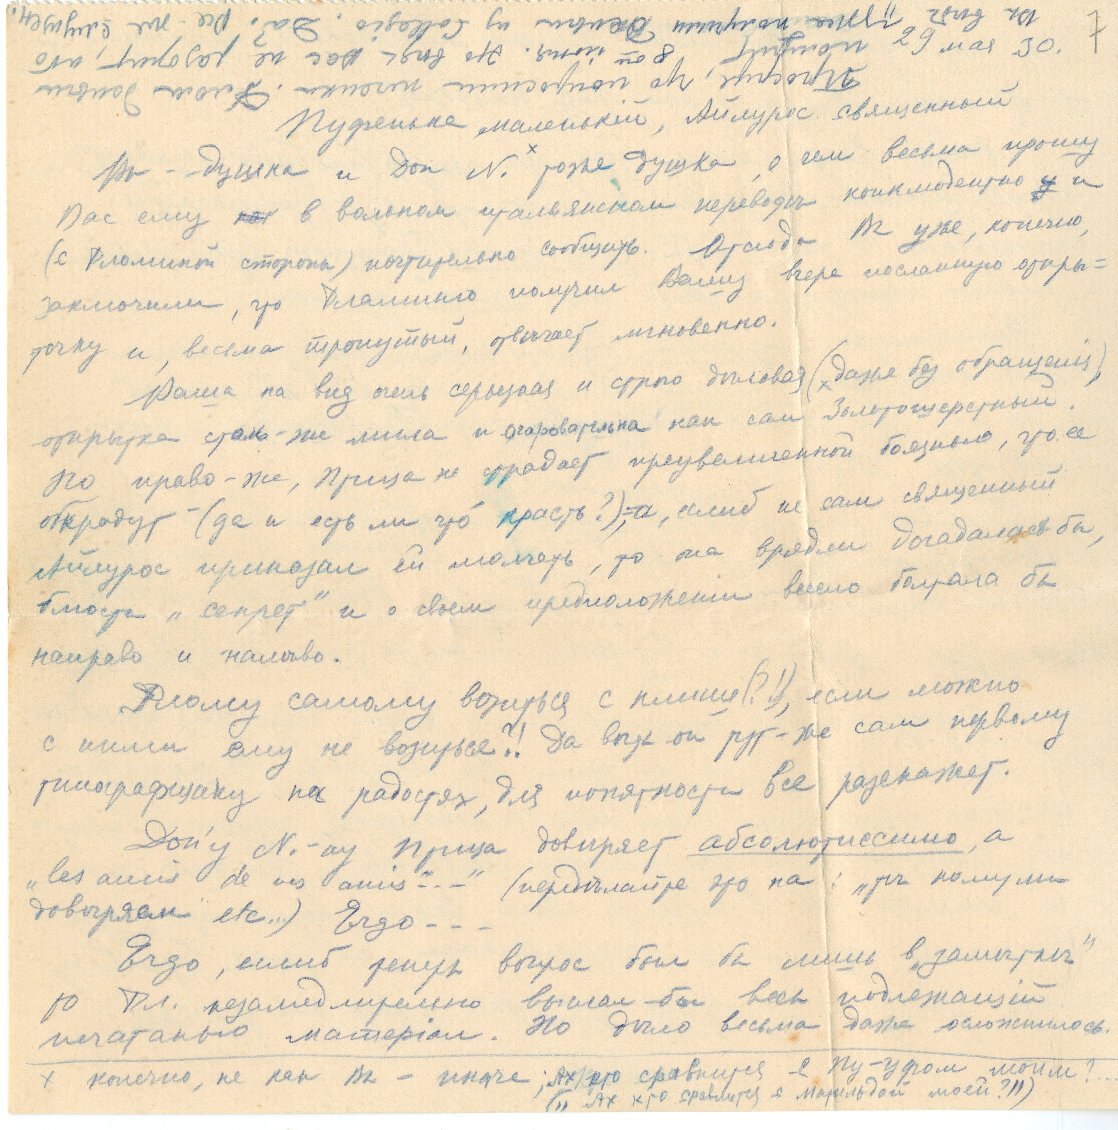 29 мая 30.
7
Пуфенька маленькій, Айлурос священный
Вы - душка и Дон N.ˣ тоже душка, о чем весьма прошу
Вас ему в вольном итальянском переводѣ и
(с Фломиной стороны) почтительно сообщить. Отсюда Вы уже, конечно,
заключили, что Фламинго получил Вашу вчера посланную откры=
точку и, весьма тронутый, отвѣчает мгновенно.
Ваша на вид очень серьезная и строго дѣловая (даже без обращенія)
открытка столь-же мила и очаровательна как сам Золотошерстный.
Но право-же, Птица не страдает преувеличенной боязнью, что ее
обкрадут - (да и есть ли что красть?), и, еслиб не сам священный
Айлурос приказал ей молчать, то она врядли догадалась бы,
блюсти „секрет" и о своем предположеніи весело болтала бы
направо и налѣво.
Фломy самому возиться с клише (?!), если можно
с ними ему не возиться?! Да вѣдь он тут-же сам первому
типографщику на радостях, для понятности все разскажет.
Дон'у N.-ну Птица довѣряет абсолютиссимо, а
„les amis de nos amis - . -" (передѣлайте это на: „тѣ кому мы
довѣряем" etc..) Ergo - - -
Ergo, еслиб теперь вопрос был бы лишь в „замѣткѣ"
то Фл. незамедлительно выслал-бы весь подлежащій
печатанью матеріал. Но дѣло весьма даже осложнилось.
x конечно, не как Вы - иначе; Ах, кто сравнится с Пу-уфом моим?...
(„ Ах кто сравнится с Матильдой моей?!")